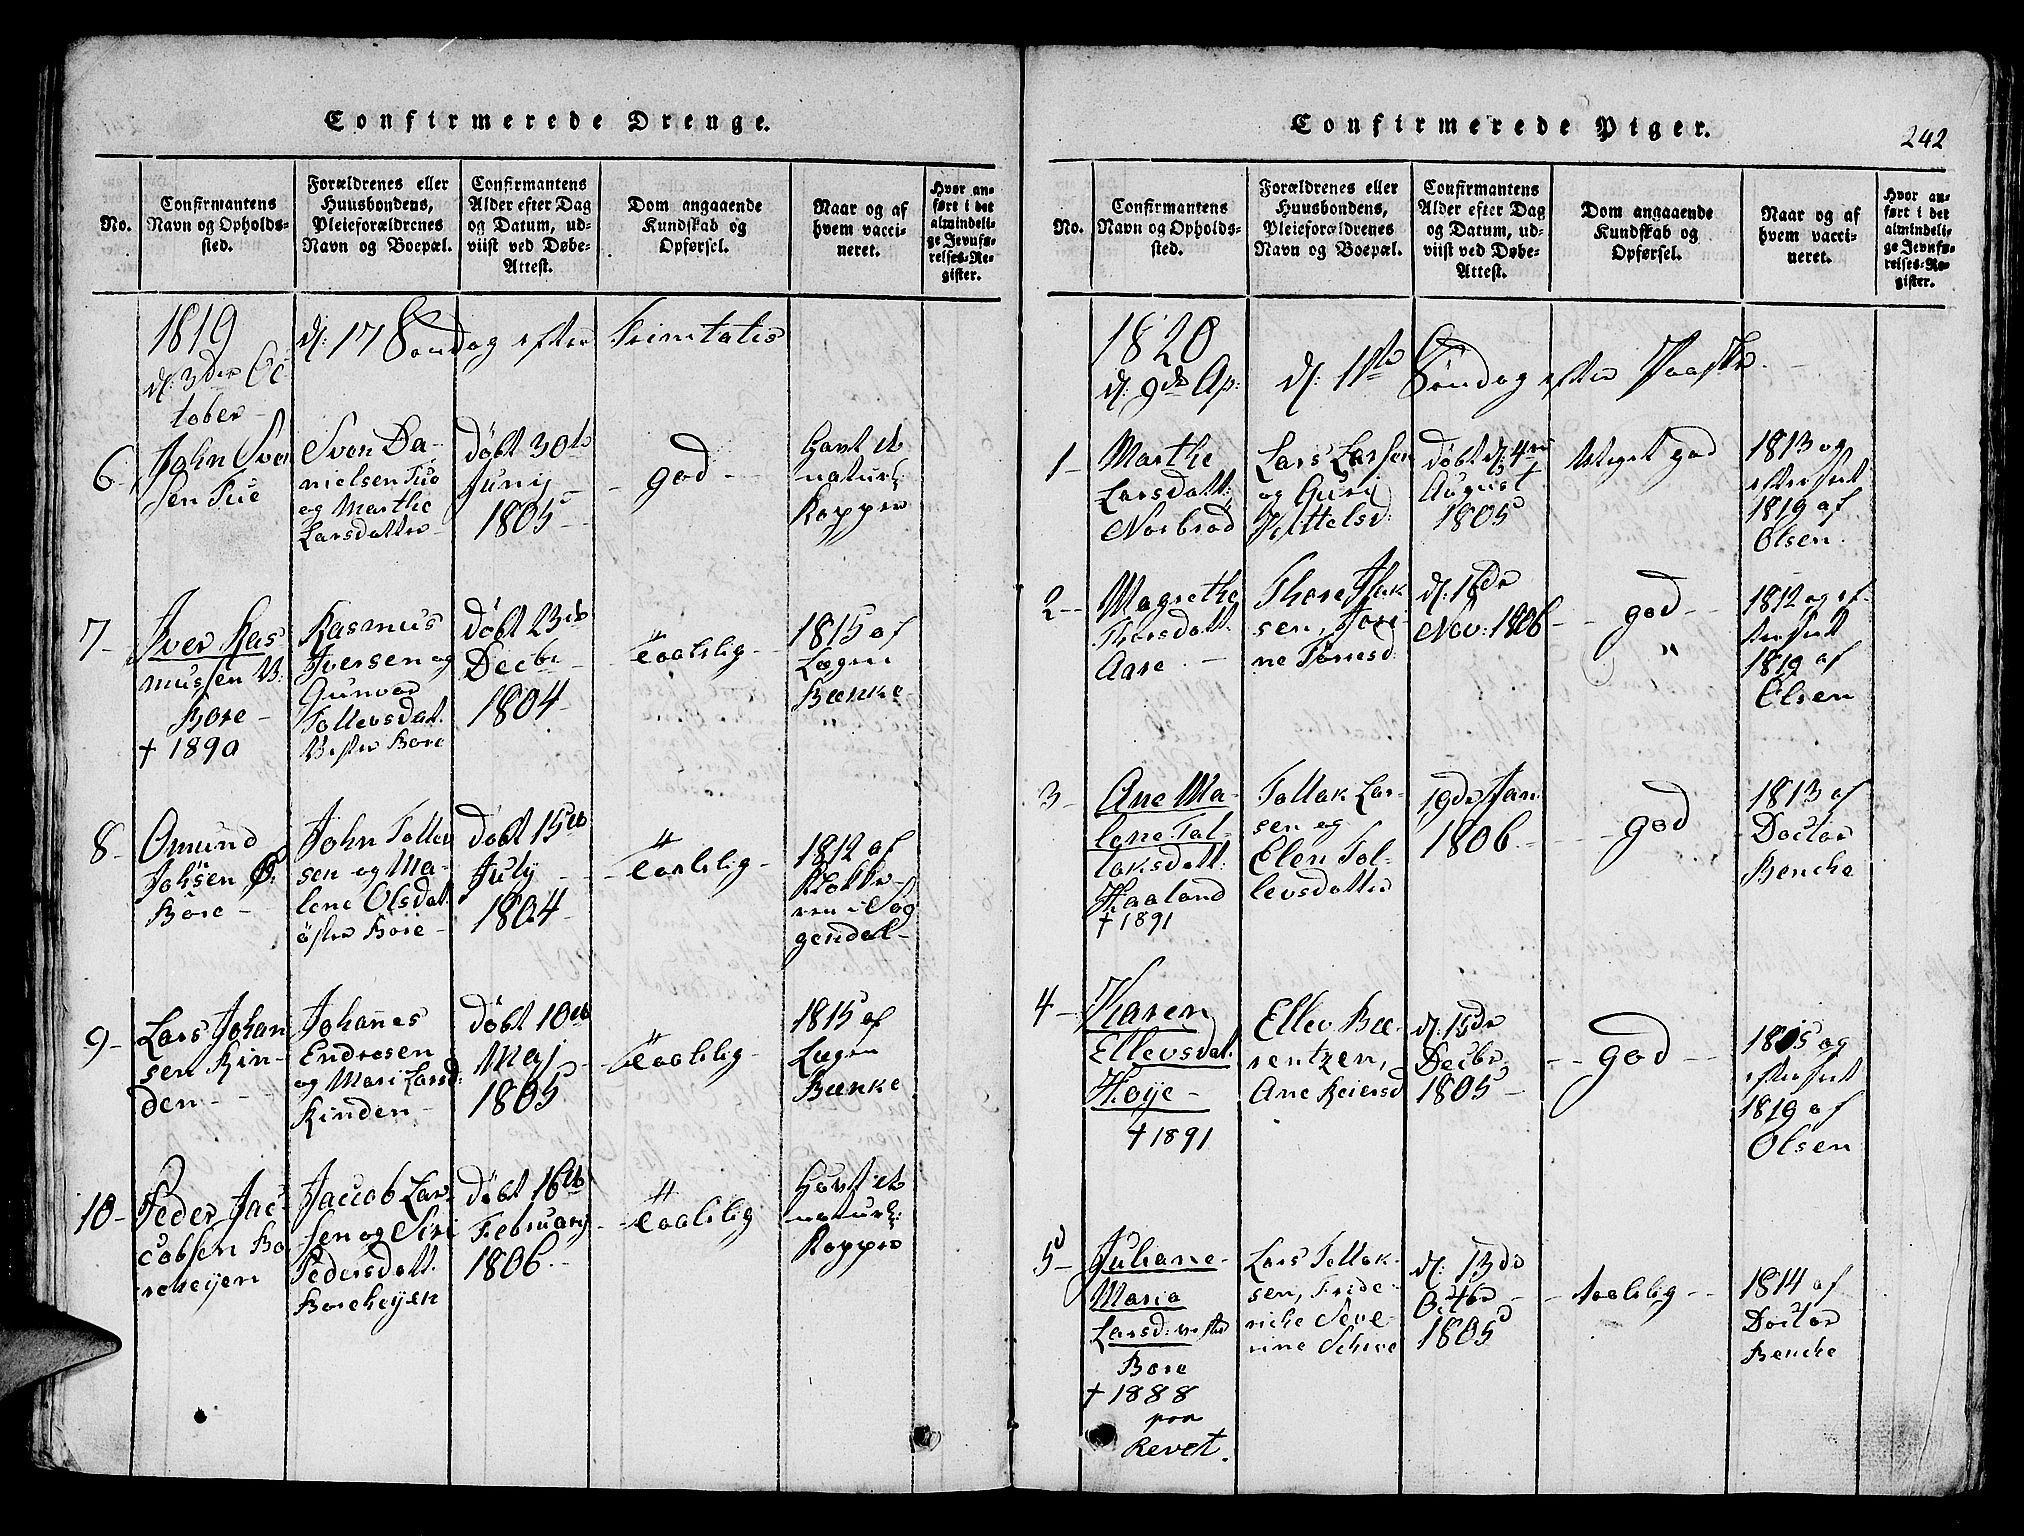 Confirmerede Drenge.
No.
Confirmantens
Navn og Opholds-
sted.
Forældrenes eller
Huusbondens,
Pleieforældrenes
Navn og Boepæl.
Confirmantens
Alder efter Dag
og Datum, ud-
viist ved Døbe-
Attest.
Dom angaaende
Kundskab og
Opførsel.
Naar og af
hvem vacci-
neret.
Hvor an-
ført i det
almindeli-
ge Jevnfø-
relses-Re-
gister.
1819
d: 3der Oc-
tober
d: 17 Søndag efter Trinitatis
6
John Sven
sen Tue
Sven Da-
nielsen Tue
og Marthe
Larsdatter
døbt 30te
Junij
1805
god
havt de
naturl:
Kopper
7
Iver Ras
mussen V:
Bore
† 1890
Rasmus
Iversen og
Gunvor
Tollevsdat.
Vester Bore
døbt 23de
Decbr
1804
taalelig
1815 af
Lægen
Bænke
8
Omund
Johsen Ø:
Bore
John Tollev
sen og Ma-
lene Olsdat.
øster Bore
døbt 15de
July
1804
taalelig
1812 af
Klokke-
ren i Sog
gendal
9
Lars Johan
sen Rin-
den
Johannes
Endresen
og Mari Larsd:
Rinden
døbt 10de
Maj
1805
taalelig
1815 af
Lægen
Bænke
10
Peder Jac-
cobsen Bo
reheyen
Jaccob Lar-
sen og Siri
Pedersdatt.
Boreheyen
døbt 16de
February
1806
taalelig
havt de
naturl:
Kopper
Confirmerede Piger.
242
No.
Confirmantens
Navn og Opholds-
sted.
Forældrenes eller
Huusbondens,
Pleieforældrenes
Navn og Boepæl.
Confirmantens
Alder efter Dag
og Datum, ud-
viist ved Døbe-
Attest.
Dom angaaende
Kundskab og
Opførsel.
Naar og af
hvem vacci-
neret.
Hvor an-
ført i det
almindeli-
ge Jevnfø-
relses-Re-
gister.
1820
d: 9de Ap:
d: 1ste Søndag efter Paaske
1
Marthe
Larsdatt:
Norbraad
Lars Larsen
og Gurij
Kittelsd:
døbt d: 4de
August
1805
Meget god
1813 og
efterseet
1819 af
Olsen
2
Magrethe
Thorsdatt.
Aase
Thore
sen,
ne Tørresd:
d: 16de
Nov: 1806
god
1812 og ef-
terseet
1819 af
Olsen
3
Ane Ma-
lene Tol-
laksdatt:
Haaland
† 1891
Tollak Lar-
sen og
Elen Tol-
levsdatter
19de Jan:
1806
god
1813 af
Doctor
Bencke
4
Karen
Ellevsdat.
Høye
† 1891
Ellev Bæ-
rentzen,
Ane Reiersd
d: 15de
Decbr
1805
god
1815 og
efterseet
1819 af
Olsen
5
Juliane
Maria
Larsd: vester
Bore
† 1888
paa
Revet.
Lars Tollak-
sen, Fride-
riche Seve-
rine Schive
d: 13de
Octbr
1805
taalelig
1814 af
Doctor
Bencke